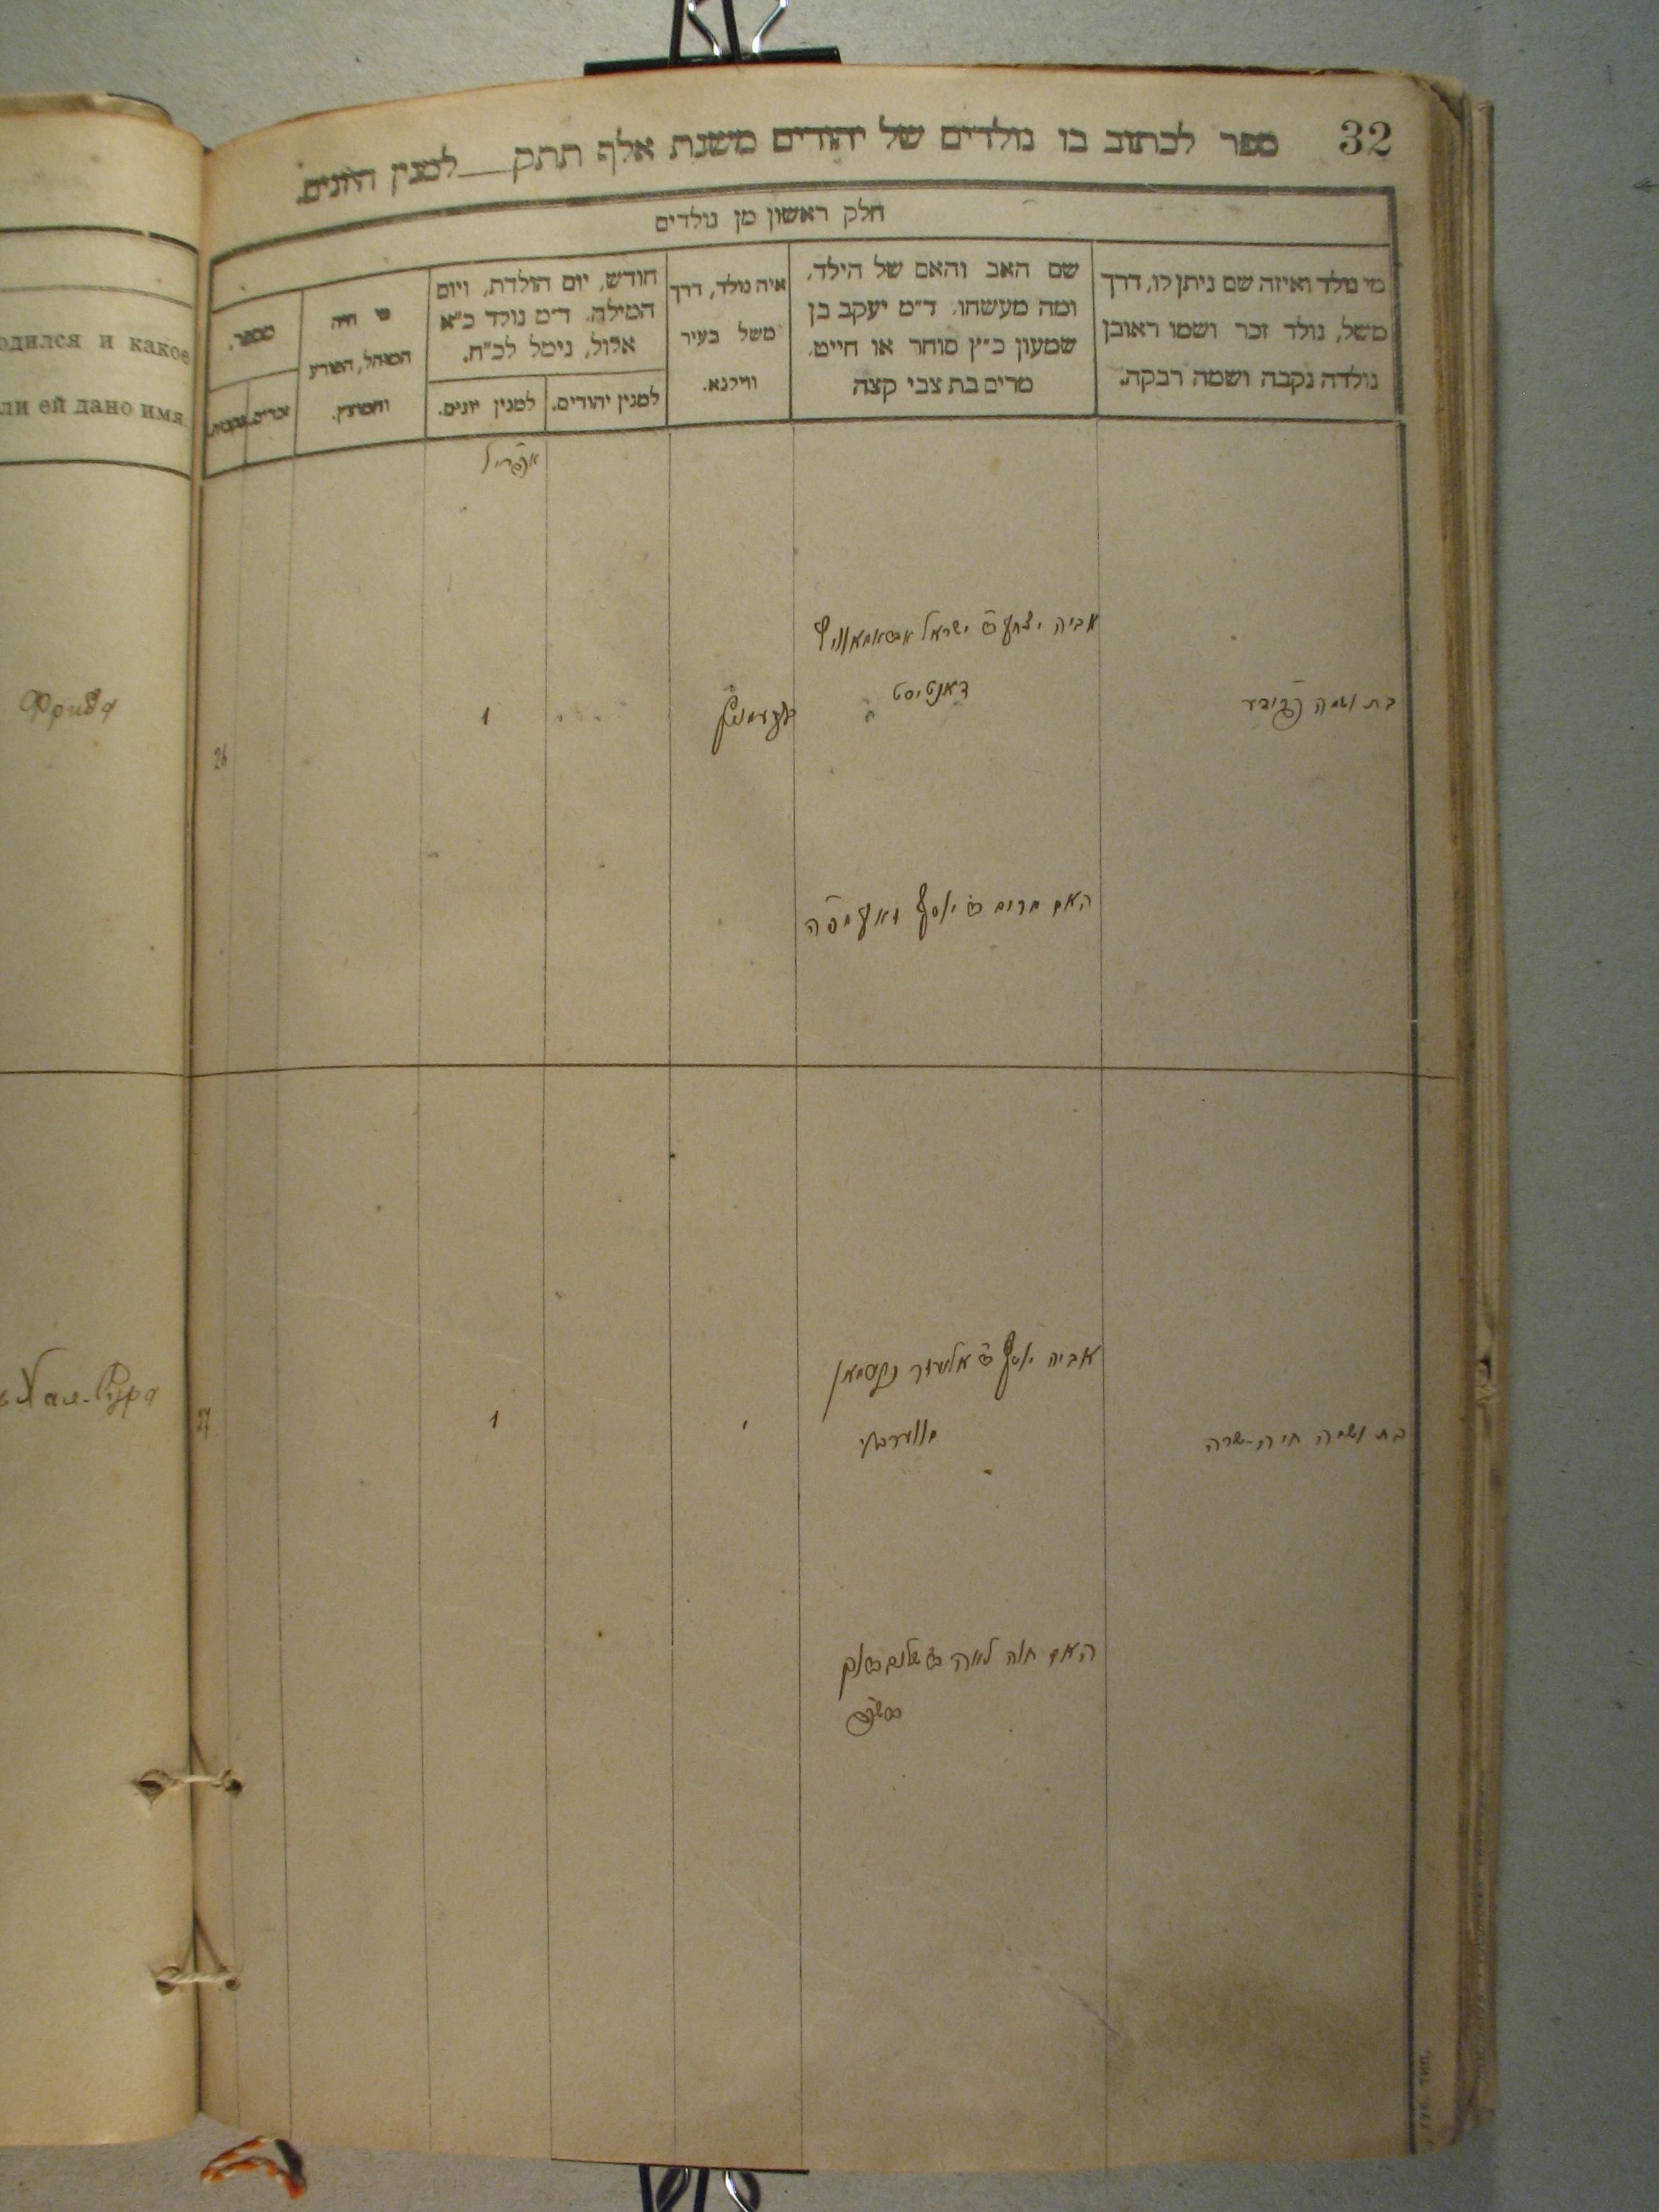 32
ספר לכתוב בו נולדים של יהודים משנת אלף תתק__למנין היונים.
חלק ראשון מן נולדים
מי נולד ואיזה שם ניתן לו, דרך
משל, נולד זכר ושמו ראובן
נולדה נקבה ושמה רבקה.
שם האב והאם של הילד,
ומה מעשהו. ד״מ יעקב בן
שמעון כ״ץ סוחר או חייט,
מרים בת צבי קצה
איה נולד, דרך
משל בעיר
ווילנא.
חודש, יום הולדת, ויום
המילה. ד״מ נולד כ״א
אלול, נימל לכ״ח.
למנין יהודים.
למנין יונים.
מי היה
המוהל, הפורע
והמוצץ.
מספר.
זכרים.
נקבות.
אפריל
אביה יצחק ב״ר ישראל
דאנטיסט
בת ושמה פרידע
1
26
האם מרים ב״ר יוסף
אביה יוסף ב״ר אליעזר
בת ושמה חיה-שרה
1
27
האם חוה לאה ב״ר
одился и какое
ли ей дано имя
Фрида
Хая-Сура
губ. тип.